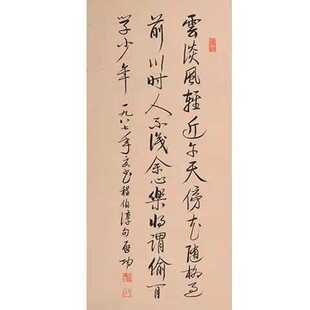 雲淡風輕近午天傍花随柳過
前川时人不識余心樂将謂偷閒
学少年 一九八七年夏书程伯淳句 启功